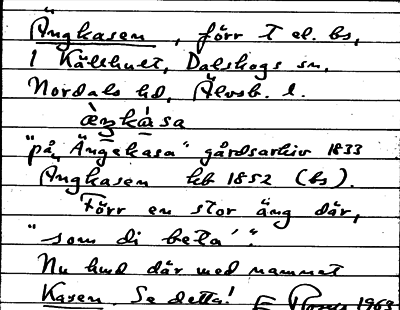 Ängkasen, förr t el. bs,
1 Källhult, Dalskogs sn,
Nordals hd, Älvsb. l.
ὰŋkὰsa
"på Ängekasa" gårdsarkiv 1833
Ängkasen hb 1852 (bs).
Förr en stor äng där,
"som di beta'".
Nu hmd där med namnet
Kasen. Se detta! 1963